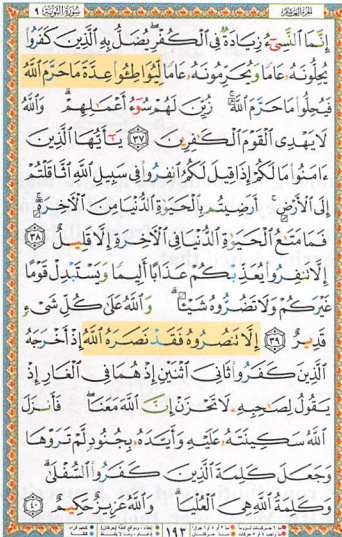 سورة التوبة ٩
الجزء العاشر
إِنَّمَا ٱلنَّسِىٓءُ زِيَادَةٌ فِى ٱلْكُفْرِ ۖ يُضَلُّ بِهِ ٱلَّذِينَ كَفَرُوا۟
يُحِلُّونَهُۥ عَامًا وَيُحَرِّمُونَهُۥ عَامًا لِّيُوَاطِـُٔوا۟ عِدَّةَ مَا حَرَّمَ ٱللَّهُ
فَيُحِلُّوا۟ مَا حَرَّمَ ٱللَّهُ ۚ زُيِّنَ لَهُمْ سُوٓءُ أَعْمَـٰلِهِمْ ۗ وَٱللَّهُ
لَا يَهْدِى ٱلْقَوْمَ ٱلْكَـٰفِرِينَ ٣٧ يَـٰٓأَيُّهَا ٱلَّذِينَ
ءَامَنُوا۟ مَا لَكُمْ إِذَا قِيلَ لَكُمُ ٱنفِرُوا۟ فِى سَبِيلِ ٱللَّهِ ٱثَّاقَلْتُمْ
إِلَى ٱلْأَرْضِ ۚ أَرَضِيتُم بِٱلْحَيَوٰةِ ٱلدُّنْيَا مِنَ ٱلْـَٔاخِرَةِ ۚ
فَمَا مَتَـٰعُ ٱلْحَيَوٰةِ ٱلدُّنْيَا فِى ٱلْـَٔاخِرَةِ إِلَّا قَلِيلٌ ٣٨
إِلَّا تَنفِرُوا۟ يُعَذِّبْكُمْ عَذَابًا أَلِيمًا وَيَسْتَبْدِلْ قَوْمًا
غَيْرَكُمْ وَلَا تَضُرُّوهُ شَيْـًٔا ۗ وَٱللَّهُ عَلَىٰ كُلِّ شَىْءٍ
قَدِيرٌ ٣٩ إِلَّا تَنصُرُوهُ فَقَدْ نَصَرَهُ ٱللَّهُ إِذْ أَخْرَجَهُ
ٱلَّذِينَ كَفَرُوا۟ ثَانِىَ ٱثْنَيْنِ إِذْ هُمَا فِى ٱلْغَارِ إِذْ
يَقُولُ لِصَـٰحِبِهِۦ لَا تَحْزَنْ إِنَّ ٱللَّهَ مَعَنَا ۖ فَأَنزَلَ
ٱللَّهُ سَكِينَتَهُۥ عَلَيْهِ وَأَيَّدَهُۥ بِجُنُودٍ لَّمْ تَرَوْهَا
وَجَعَلَ كَلِمَةَ ٱلَّذِينَ كَفَرُوا۟ ٱلسُّفْلَىٰ ۗ
وَكَلِمَةُ ٱللَّهِ هِىَ ٱلْعُلْيَا ۗ وَٱللَّهُ عَزِيزٌ حَكِيمٌ ٤٠
١٩٣